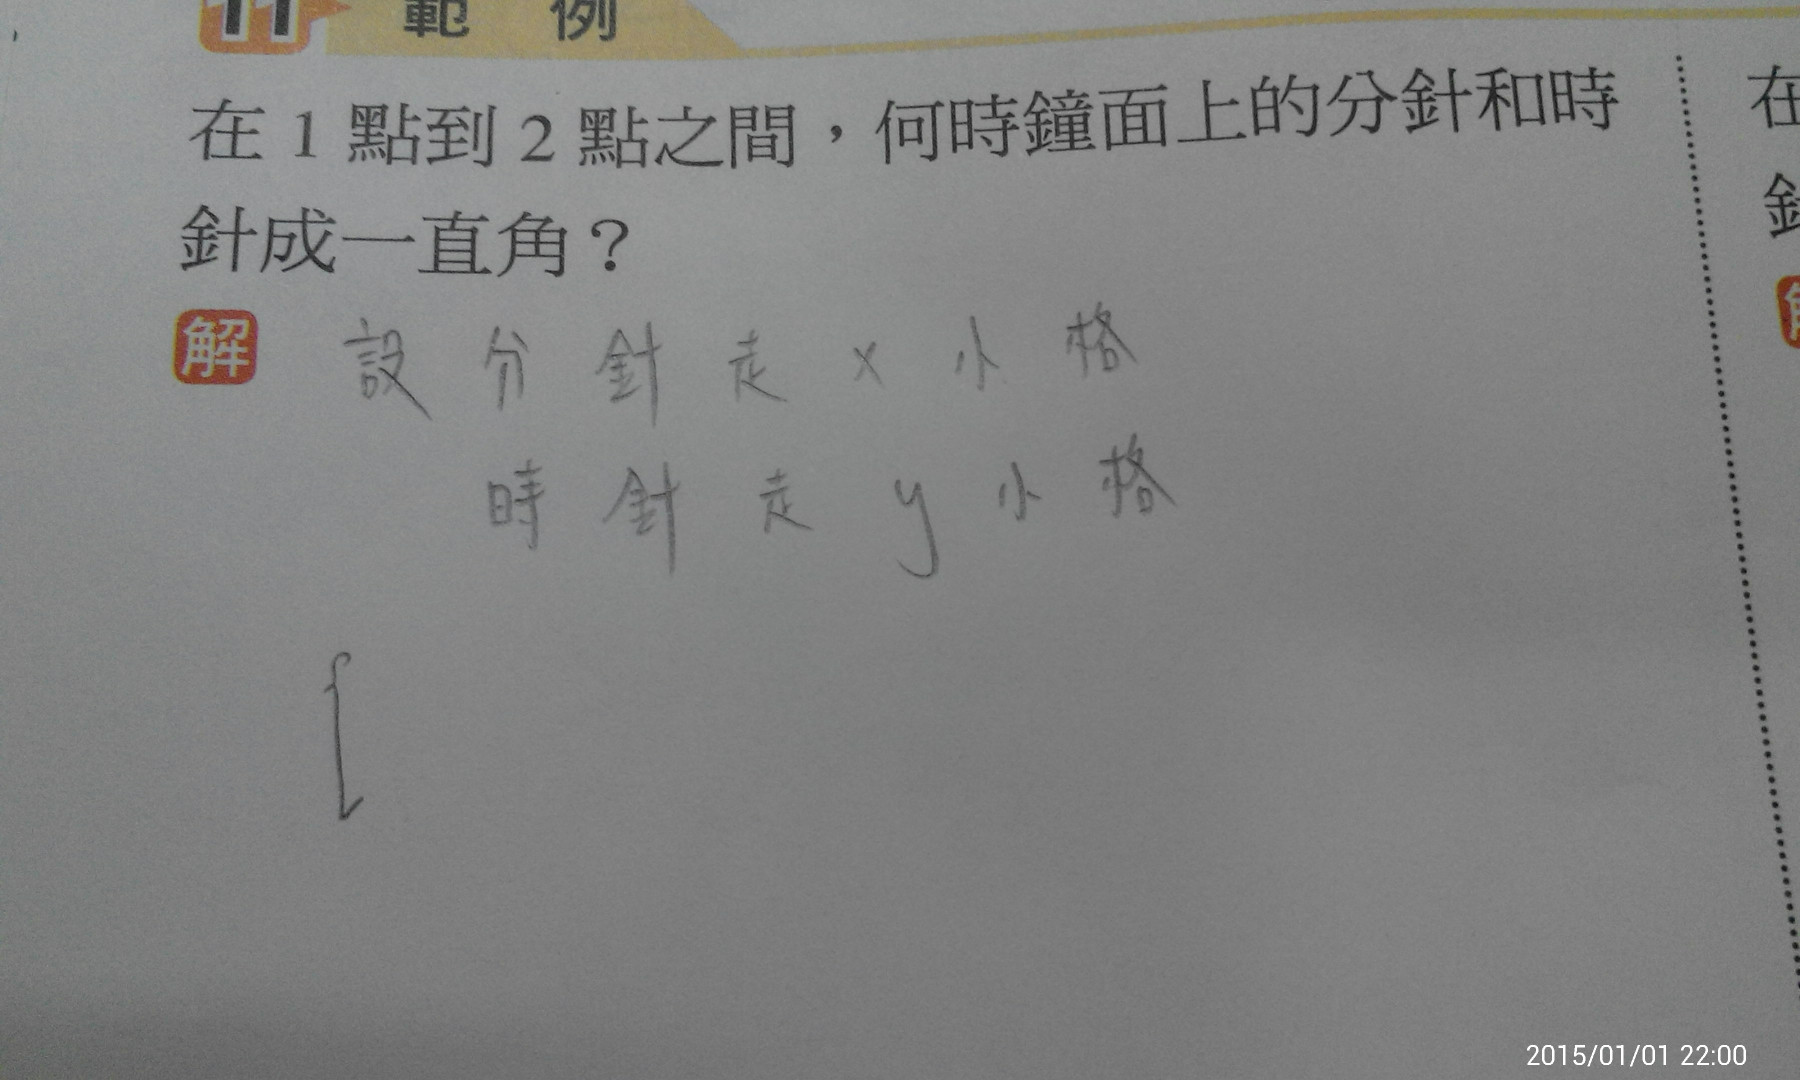 11 範 例
在 1 點到 2 點之間，何時鐘面上的分針和時
針成一直角？
解 設 分 針 走 x 小 格
時 針 走 y 小 格
在
針
2015/01/01 22:00